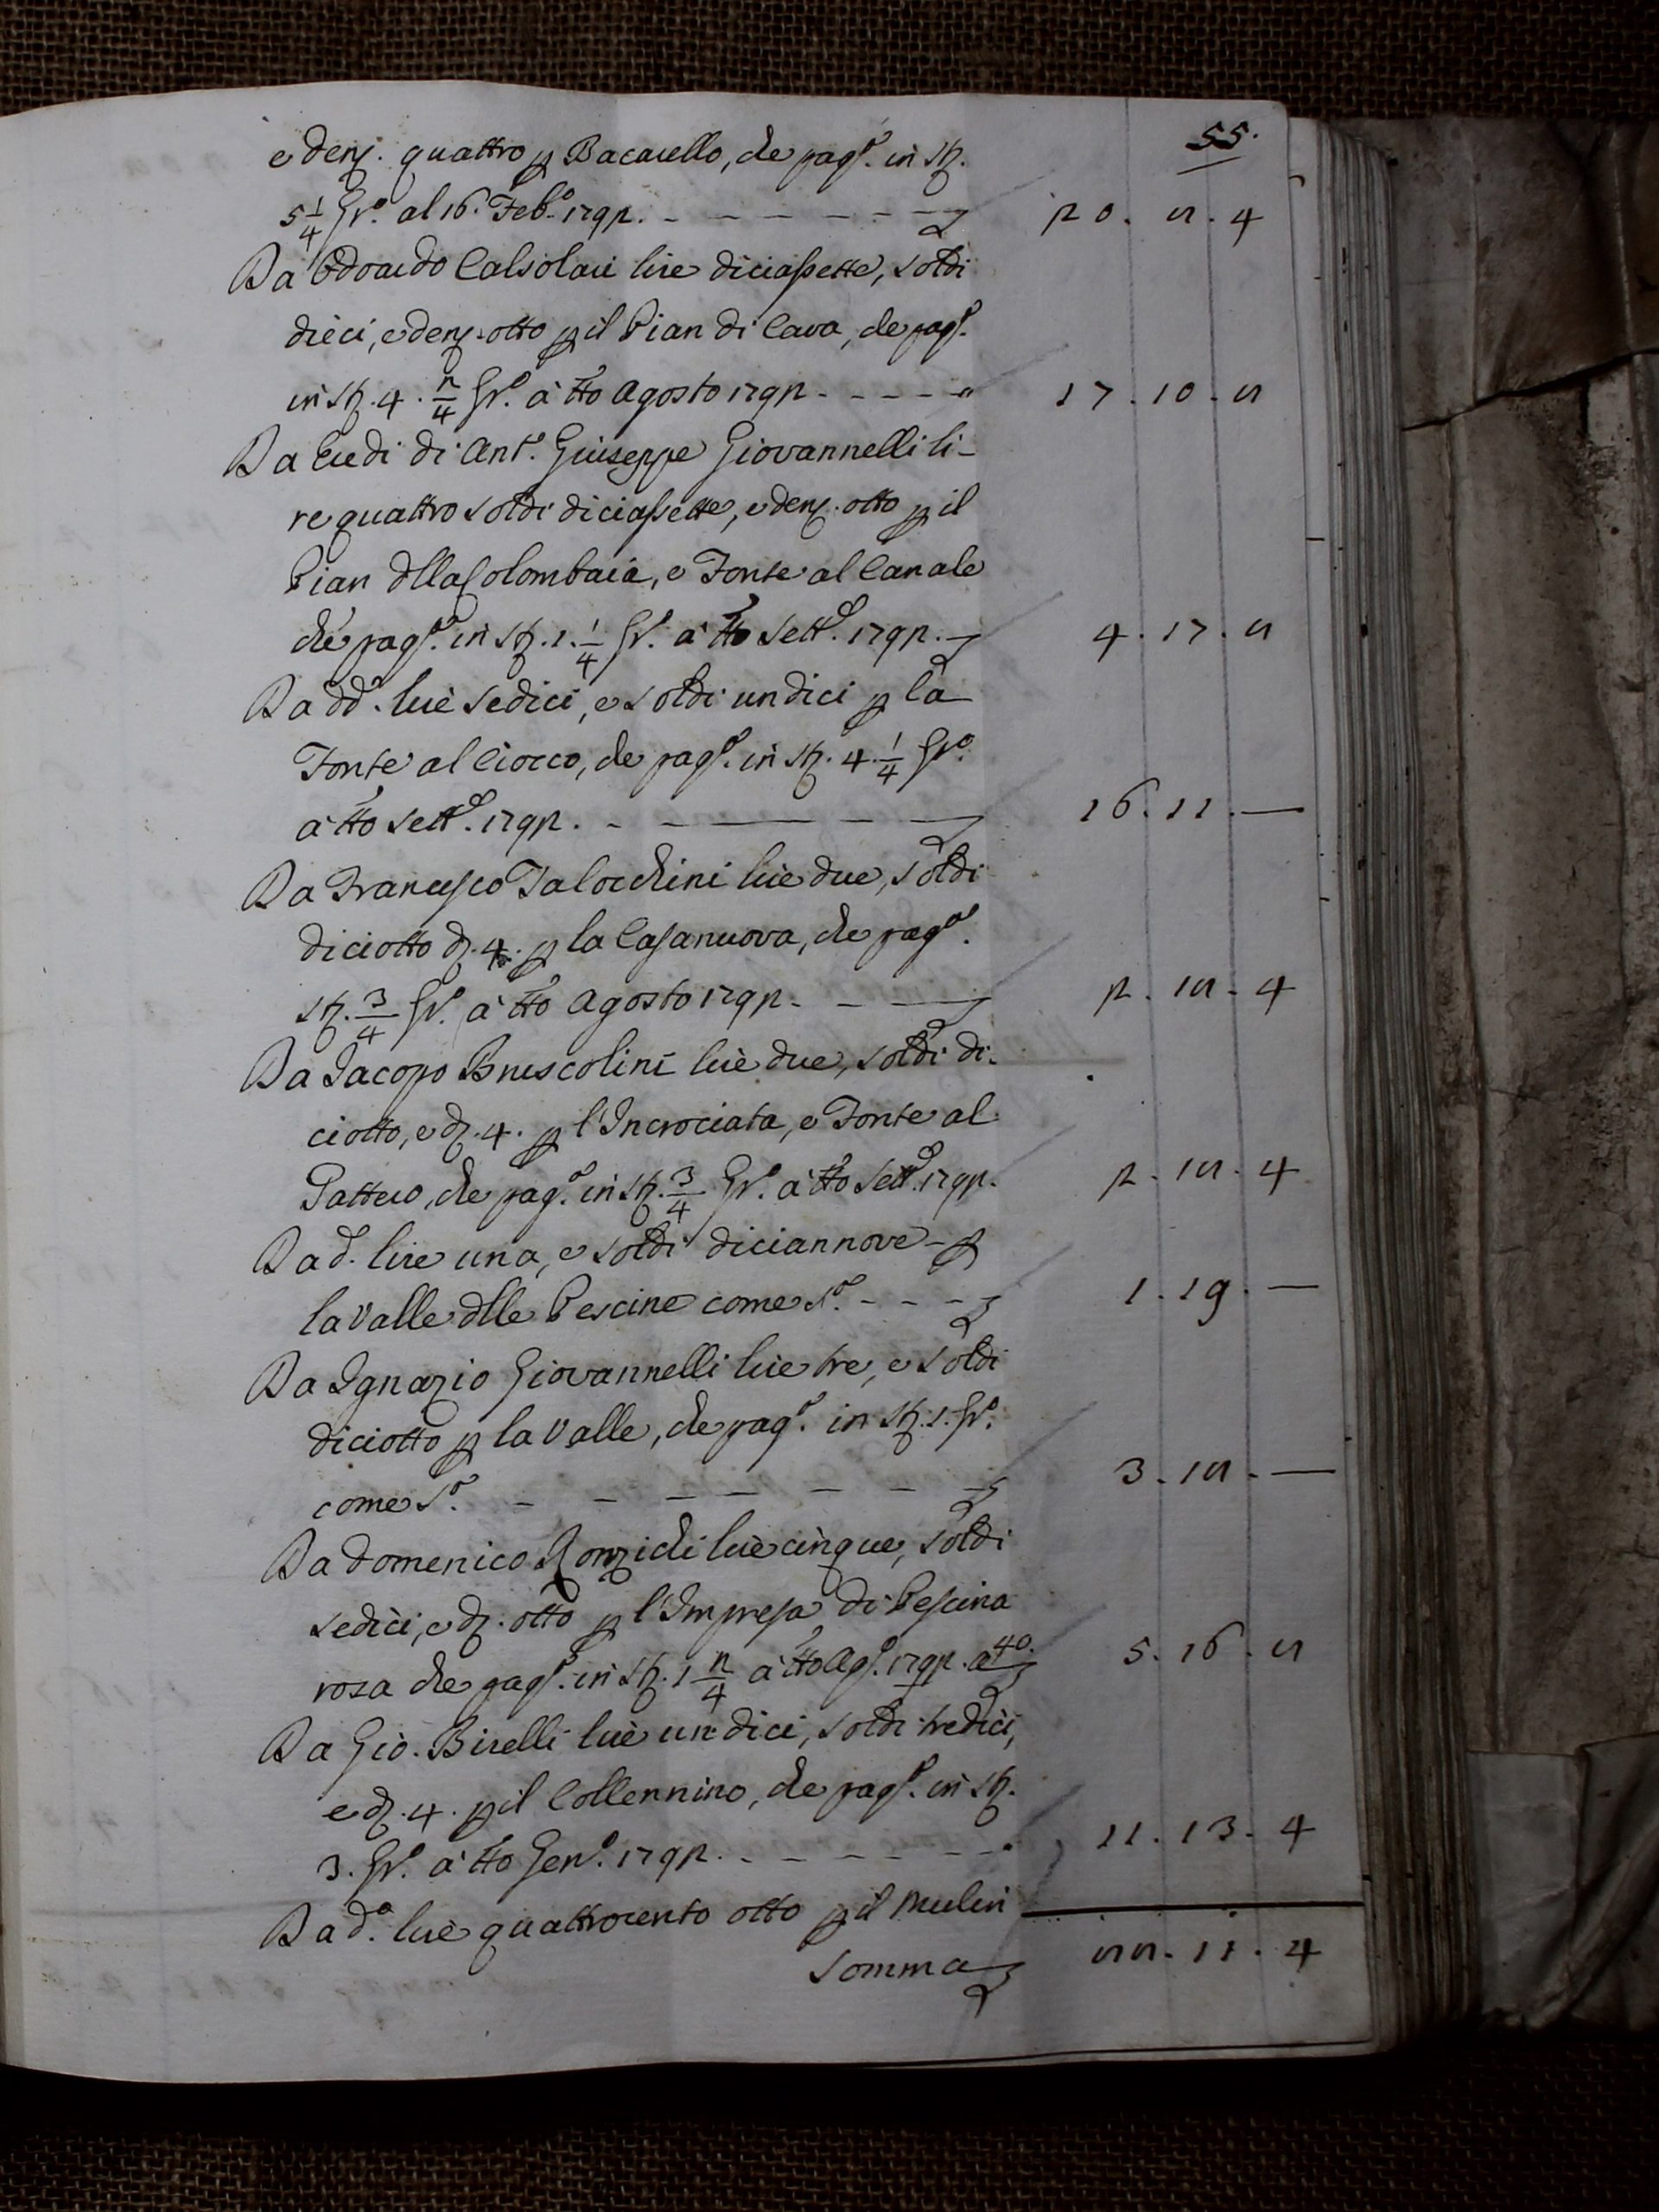 55.
e denj. quattro p Bacarello, che pagò. in stj.
5 1/4 Grº. al 16. Febº. 1792. 20. 8. 4
Da Odoardo Calsolari lire diciassette, soldi
dieci, e denj. otto p il Pian di Cava, che pagò.
in stj. 4. 2/4 Grº. à tto Agosto 1792 17. 10. 8
Da Eredi di Antº. Giuseppe Giovannelli li-
re quattro soldi diciassette, e denj. otto p il
Pian dlla Colombaia, e Fonte al Canale
che pagò. in stj. 1. 1/4 Grº. à tto Sette. 1792. 4. 17. 8
Da ddº. lire sedici, e soldi undici p la
Fonte al Ciocco, che pagò. in stj. 4. 1/4 Grº.
à tto Sette. 1792. 16. 11. —
Da Francesco Talocchini lire due, soldi
diciotto dj. 4. p la Casanuova, che pagò.
stj. 3/4 Grº. à tto Agosto 1792 2. 18. 4
Da Jacopo Bruscolini lire due, soldi di-
ciotto, e dj. 4. p l'Incrociata, e Fonte al
Pattero, che pagò. in stj. 3/4 Grº. à tto Sette. 1792. 2. 18. 4
Da dº. lire una, e soldi diciannove p
la Valle dlle Pescine come Sª. 1. 19. —
Da Ignazio Giovannelli lire tre, e soldi
diciotto p la Valle, che pagò. in stj. 1. Grº.
come Sª. 3. 18. —
Da Domenico Ronzichi lire cinque, soldi
sedici, e dj. otto p l'Impresa di Pescina
rosa che pagò. in stj. 1 2/4 à tto Agº. 1792. a 40. 5. 16. 8
Da Gio. Birelli lire undici, soldi tredici,
e dj. 4. p il Collennino, che pagò. in stj.
3. Grº. à tto Genº. 1792. 11. 13. 4
Da dº. lire quattrocento otto p il Mulin
Somma 88. 11. 4